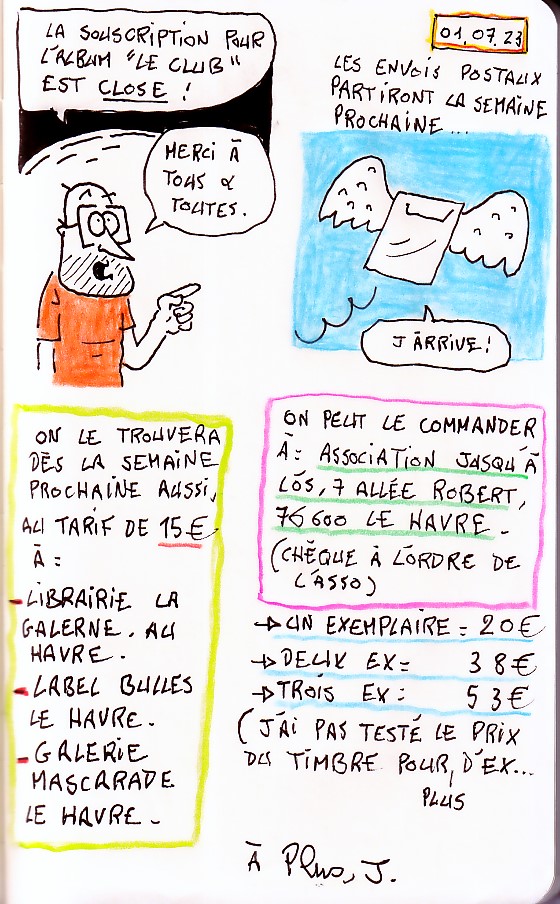 LA SOUSCRIPTION POUR
L'ALBUM "LE CLUB"
EST CLOSE !
MERCI À
TOUS &
TOUTES.
01.07.23
LES ENVOIS POSTAUX
PARTIRONT LA SEMAINE
PROCHAINE...
J'ARRIVE!
ON LE TROUVERA
DÈS LA SEMAINE
PROCHAINE AUSSI,
AU TARIF DE 15€
À :
- LIBRAIRIE LA
GALERNE. AU
HAVRE.
- LABEL BULLES
LE HAVRE.
- GALERIE
MASCARADE
LE HAVRE.
ON PEUT LE COMMANDER
À : ASSOCIATION JUSQU'À
LÓS, 7 ALLÉE ROBERT,
76600 LE HAVRE.
(CHÈQUE À L'ORDRE DE
L'ASSO)
→ UN EXEMPLAIRE = 20€
→ DEUX EX = 38€
→ TROIS EX : 53€
(J'AI PAS TESTÉ LE PRIX
DU TIMBRE POUR, D'EX...
PLUS
À Plus, J.